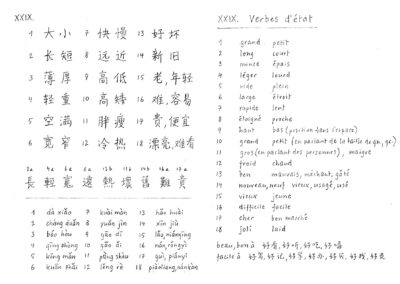 XXIX.
1 大小 7 快慢 13 好坏
2 长短 8 远近 14 新旧
3 薄厚 9 高低 15 老,年轻
4 轻重 10 高矮 16 难,容易
5 空满 11 胖瘦 17 贵,便宜
6 宽窄 12 冷热 18 漂亮,难看
2a 4a 6a 8a 12a 13a 14a 16a 17a
長 輕 寬 遠 熱 壞 舊 難 貴
1 dà xiǎo 7 kuài màn 13 hǎo huài
2 cháng duǎn 8 yuǎn jìn 14 xīn jiù
3 báo hòu 9 gāo dī 15 lǎo, niánqīng
4 qīng zhòng 10 gāo ǎi 16 nán, róngyì
5 kōng mǎn 11 pàng shòu 17 guì, piányi
6 kuān zhǎi 12 lěng rè 18 piàoliang, nánkàn
XXIX. Verbes d'état
1 grand petit
2 long court
3 mince épais
4 léger lourd
5 vide plein
6 large étroit
7 rapide lent
8 éloigné proche
9 haut bas (position dans l'espace)
10 grand petit (en parlant de la taille de qn, qc)
11 gros (en parlant des personnes), maigre
12 froid chaud
13 bon mauvais, méchant, gâté
14 nouveau, neuf vieux, usagé, usé
15 vieux jeune
16 difficile facile
17 cher bon marché
18 joli laid
beau, bon à 好看, 好听, 好吃, 好喝
facile à 好写, 好记, 好学, 好办, 好买, 好找, 好走